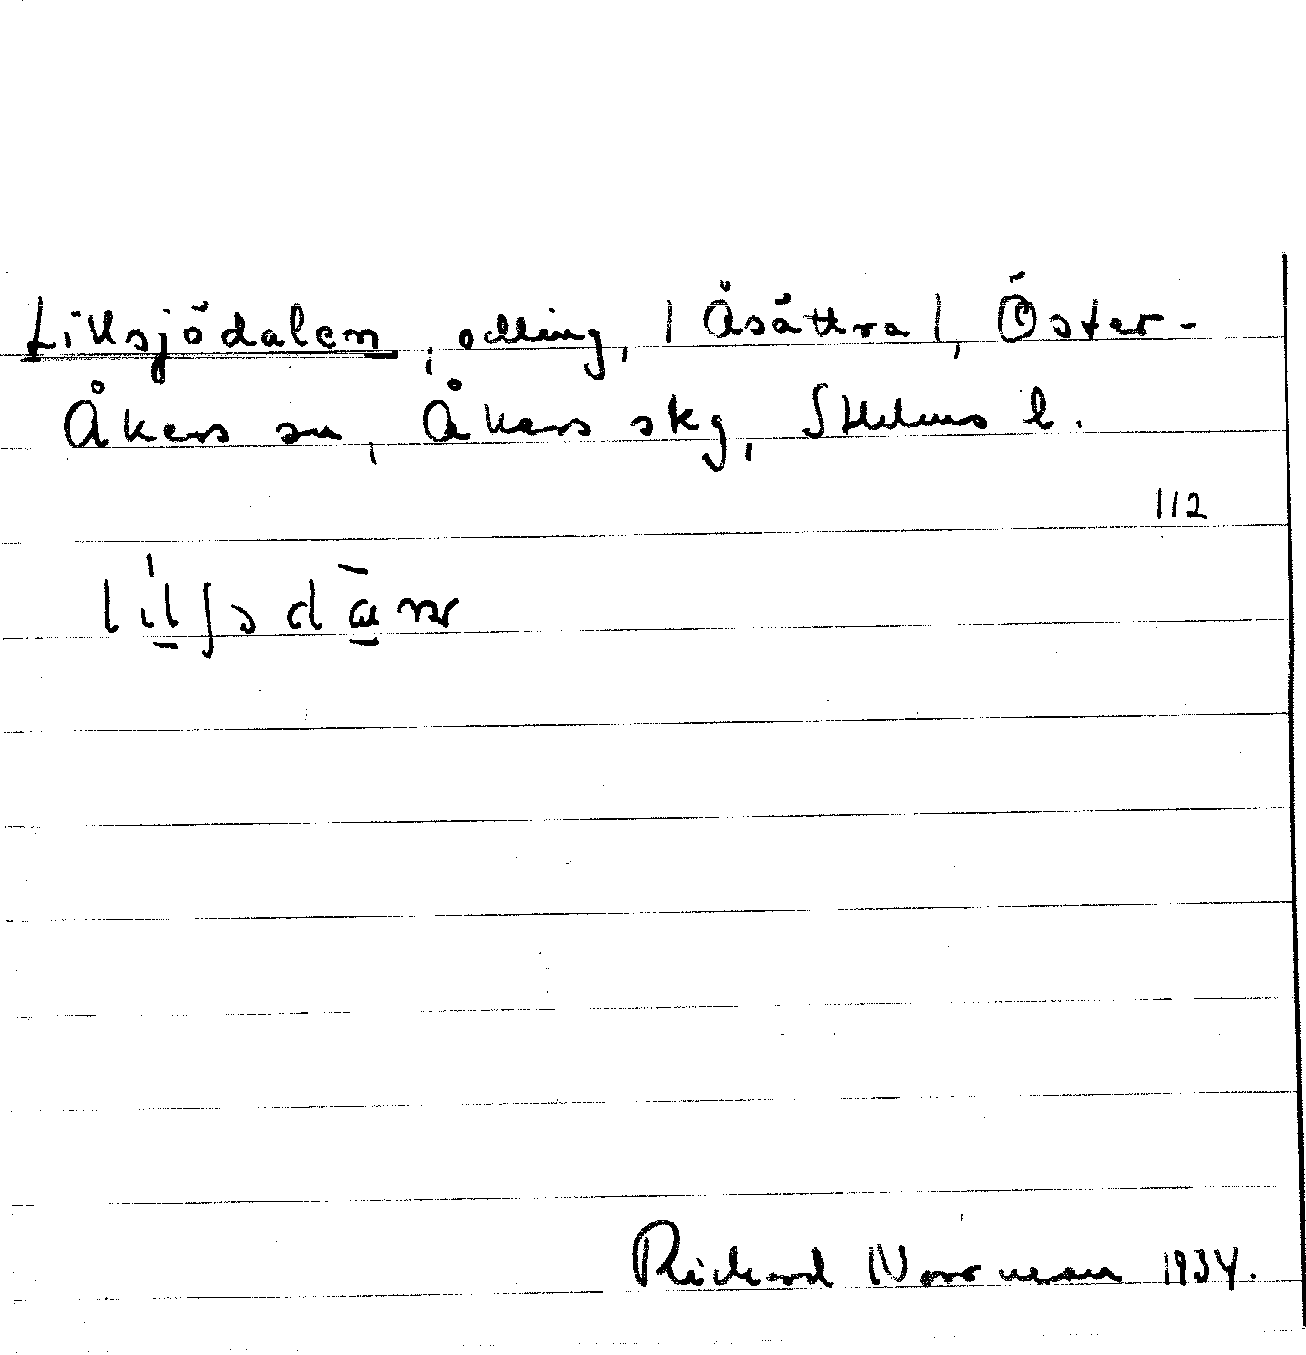 Lillsjödalen, odling, | Åsättra |, Öster-
Åkers sn, Åkers skg, Sthlms l.
112
Rickard Norrman 1934.